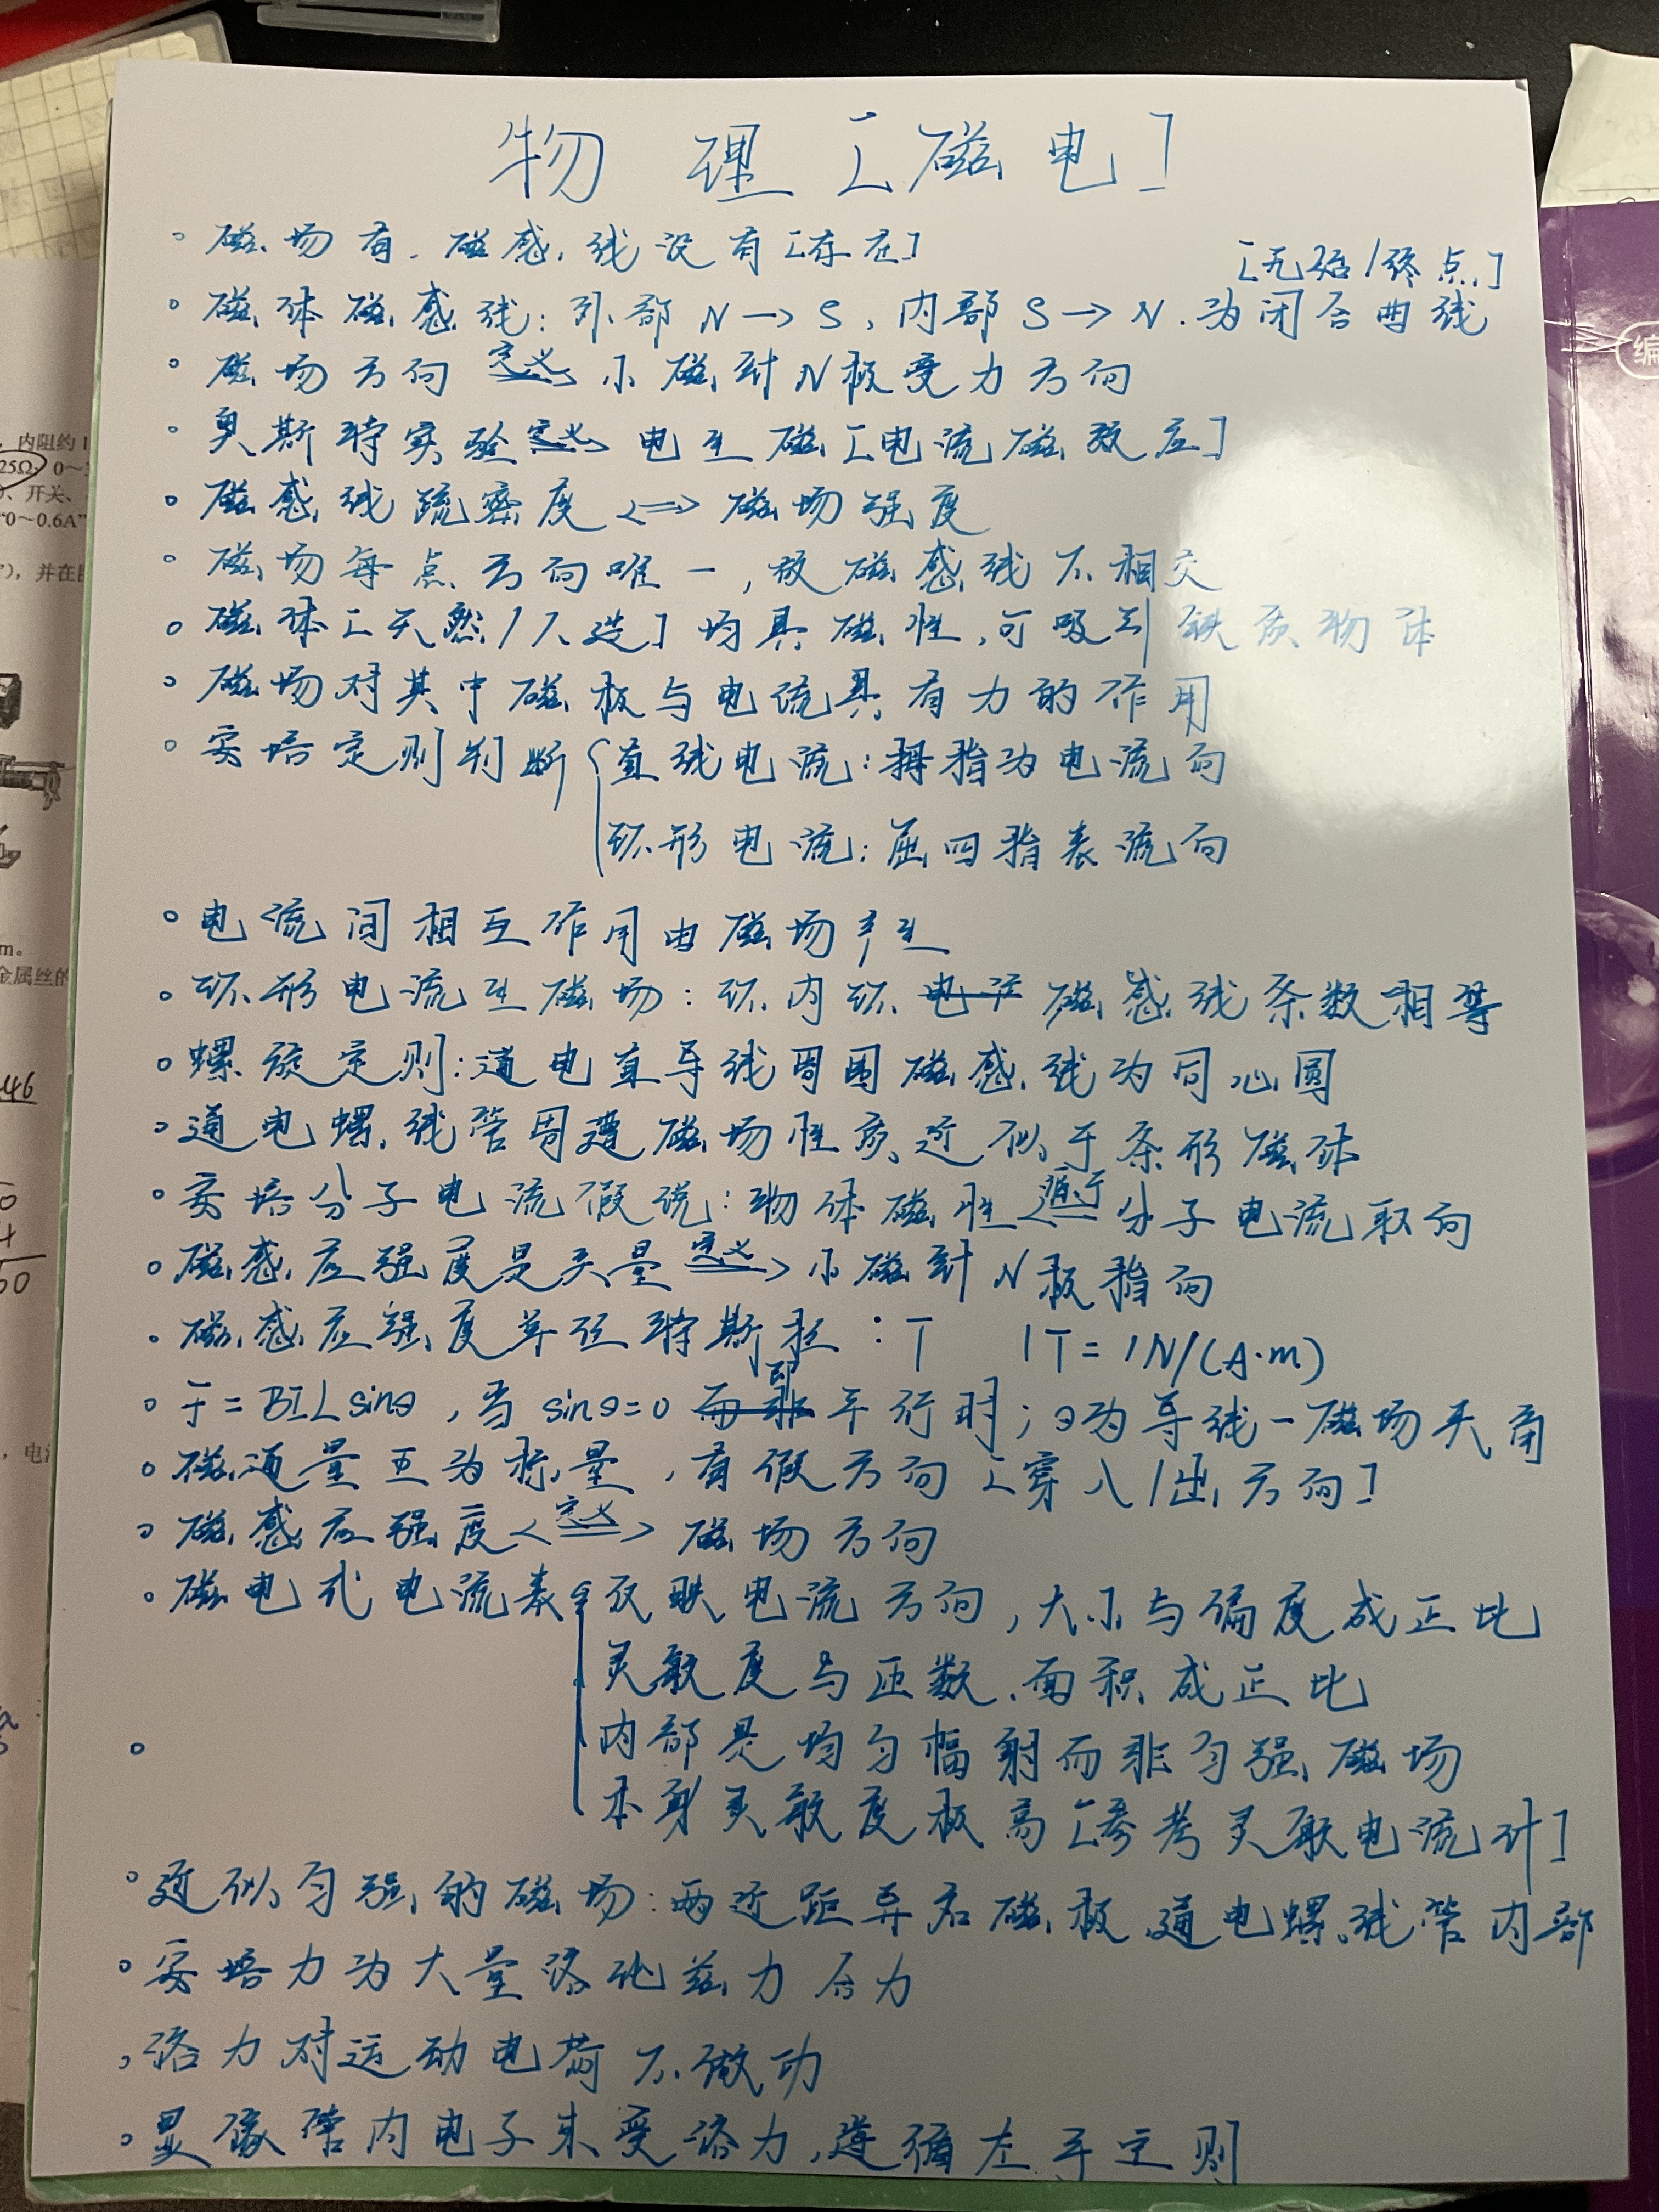 物理[磁电]
。磁场有,磁感线没有[存在]
[无始/终点]
。磁体磁感线:外部N→S,内部S→N.为闭合曲线
。磁场方向 定义 小磁针N极受力方向
。奥斯特实验 定义 电生磁[电流磁效应]
。磁感线疏密度<=>磁场强度
。磁场每点方向唯一,故磁感线不相交
。磁体[天然/人造]均具磁性,可吸引铁质物体
。磁场对其中磁极与电流具有力的作用
。安培定则判断{直线电流:拇指为电流向
环形电流:屈四指表流向
。电流间相互作用由磁场产生
。环形电流生磁场:环内环 磁感线条数相等
。螺旋定则:通电直导线周围磁感线为同心圆
。通电螺线管周遭磁场性质近似于条形磁体
。安培分子电流假说:物体磁性 源于 分子电流取向
。磁感应强度是矢量 定义 小磁针N极指向
。磁感应强度单位特斯拉:T 1T=1N/(A·m)
。F=BILsinθ,当sinθ=0 即 平行时;θ为导线-磁场夹角
。磁通量 为标量,有假方向[穿入/出方向]
。磁感应强度<定义>磁场方向
。磁电式电流表{反映电流方向,大小与偏度成正比
灵敏度与匝数、面积成正比
。内部是均匀幅射而非匀强磁场
本身灵敏度极高[参考灵敏电流计]
。近似匀强的磁场:两近距异名磁极、通电螺线管内部
。安培力为大量洛伦兹力合力
。洛力对运动电荷不做功
。显像管内电子束受洛力,遵循左手定则
内阻约1
25Ω 0~3
开关、
"0~0.6A"
"),并在
m。
金属丝的
46
50
,电
编